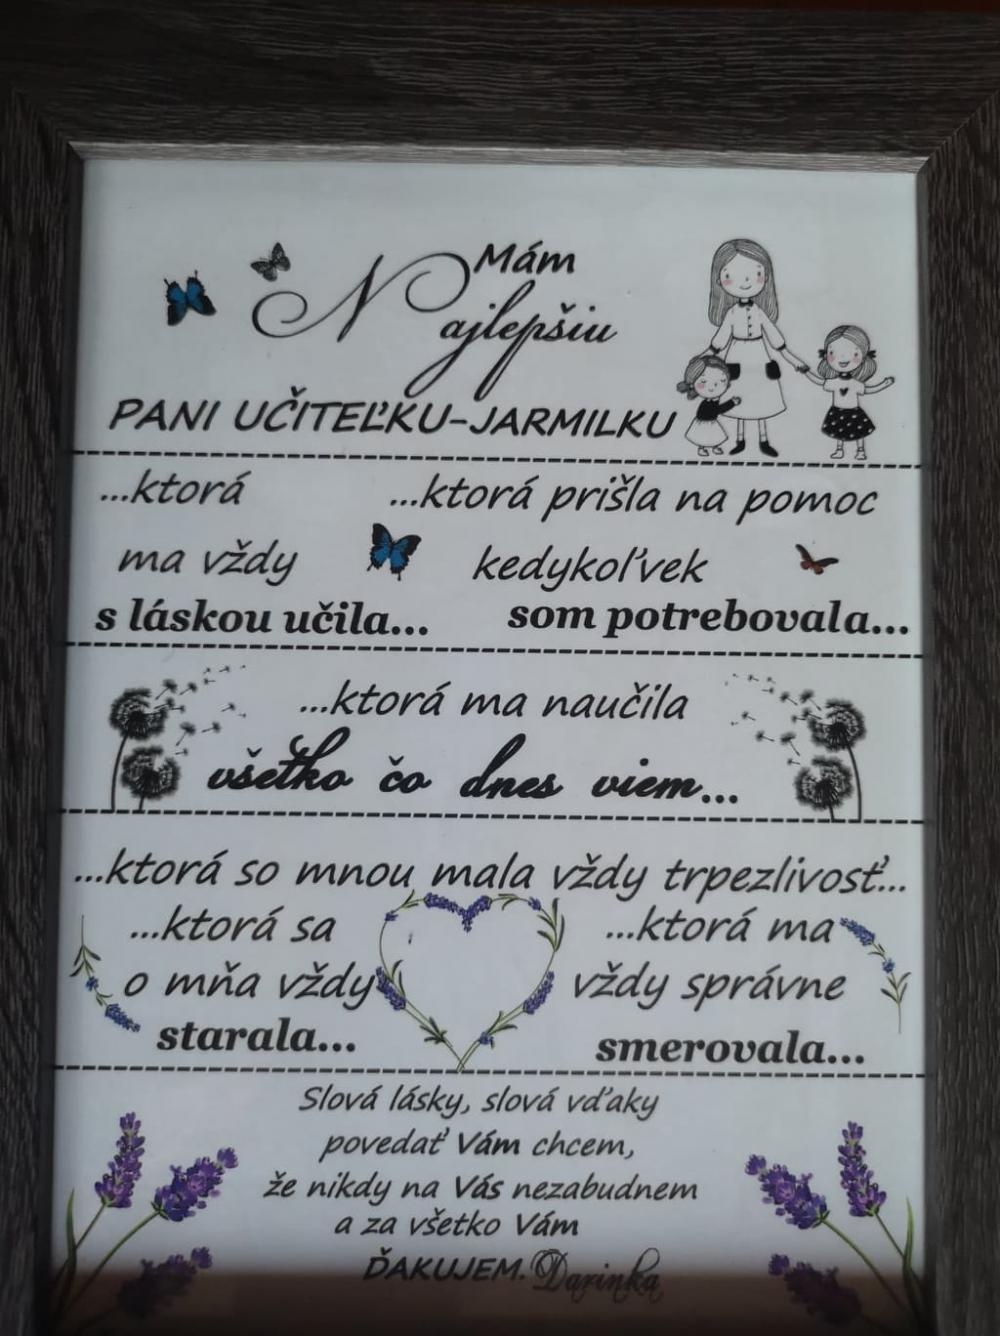 Mám
Najlepšiu
PANI UČITEĽKU-JARMILKU
...ktorá
ma vždy
s láskou učila...
...ktorá prišla na pomoc
kedykoľvek
som potrebovala...
...ktorá ma naučila
všetko čo dnes viem...
...ktorá so mnou mala vždy trpezlivosť...
...ktorá sa
o mňa vždy
starala...
...ktorá ma
vždy správne
smerovala...
Slová lásky, slová vďaky
povedať Vám chcem,
že nikdy na Vás nezabudnem
a za všetko Vám
ĎAKUJEM. Darinka